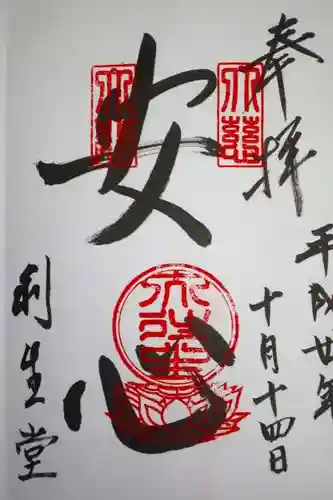 奉拝
平成廿年
十月十四日
安心
利生堂